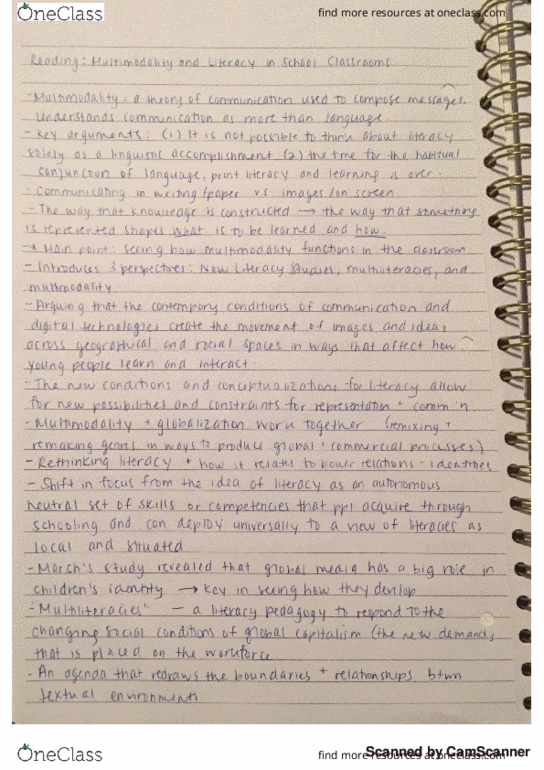 OneClass
find more resources at oneclass.com
Reading: Multimodality and Literacy in School Classrooms
- Multimodality: a theory of communication used to compose messages.
Understands communication as more than language
- Key arguments: (1) It is not possible to think about literacy
solely as a linguistic accomplishment (2) the time for the habitual
conjunction of language, print literacy and learning is over.
- Communicating in writing/paper vs images/on screen
- The way that knowledge is constructed → the way that something
is represented shapes what is to be learned and how.
-* Main point: seeing how multimodality functions in the classroom
- Introduces 3 perspectives: New Literacy Studies, multiliteracies, and
multimodality
- Arguing that the contempory conditions of communication and
digital technologies create the movement of images and ideas
across geographical and social spaces in ways that affect how
young people learn and interact
- The new conditions and conceptualizations for literacy allow
for new possibilities and constraints for representation + comm'n
- Multimodality + globalization work together (remixing +
remaking genres in ways to produce global + commercial processes)
- Rethinking literacy + how it relates to power relations + identities
- Shift in focus from the idea of literacy as an autonomous
neutral set of skills or competencies that ppl acquire through
schooling and can deploy universally to a view of literacies as
local and situated
- Marsh's study revealed that global media has a big role in
children's identity → key in seeing how they develop
- "Multiliteracies" - a literacy pedagogy to respond to the
changing social conditions of global capitalism (the new demands
that is placed on the workforce
- An agenda that redraws the boundaries + relationships btwn
textual environments
OneClass
find more resources at oneclass.com
Scanned by CamScanner